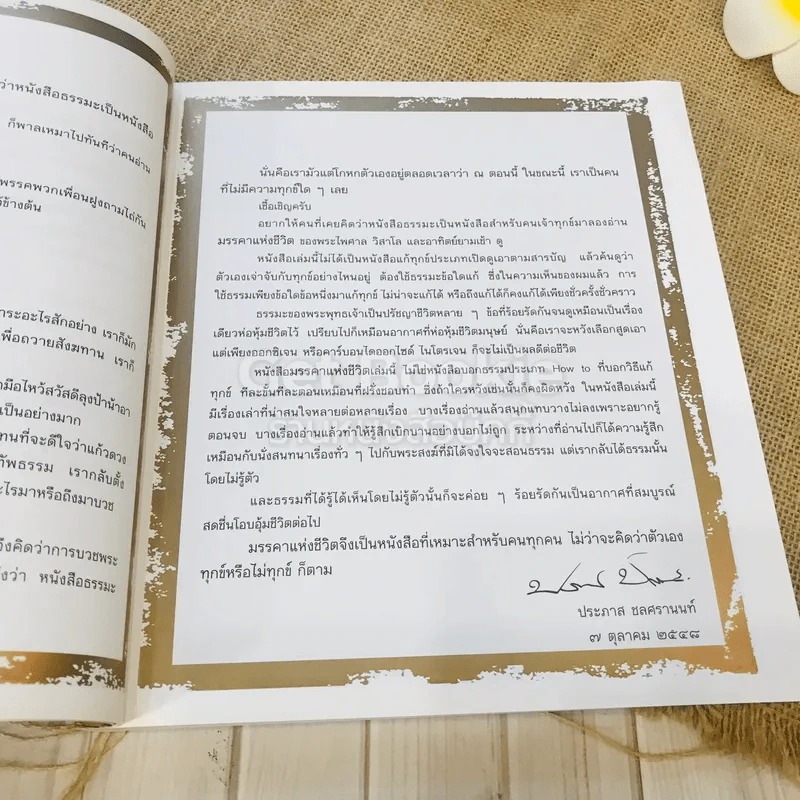 ว่าหนังสือธรรมะเป็นหนังสือ
ก็พาลเหมาไปทันทีว่าคนอ่าน
พรรคพวกเพื่อนฝูงถามไถ่กัน
ข้างต้น
าระอะไรสักอย่าง เราก็มัก
พื่อถวายสังฆทาน เราก็
มือไหว้สวัสดีลุงป้าน้าอา
เป็นอย่างมาก
ทนที่จะดีใจว่าแก้วดวง
ัพธรรม เรากลับตั้ง
ะไรมาหรือถึงมาบวช
ึงคิดว่าการบวชพระ
หนังสือธรรมะ
นั่นคือเรามัวแต่โกหกตัวเองอยู่ตลอดเวลาว่า ณ ตอนนี้ ในขณะนี้ เราเป็นคน
ที่ไม่มีความทุกข์ใด ๆ เลย
เชื้อเชิญครับ
อยากให้คนที่เคยคิดว่าหนังสือธรรมะเป็นหนังสือสำหรับคนเจ้าทุกข์มาลองอ่าน
มรรคาแห่งชีวิต ของพระไพศาล วิสาโล และอาทิตย์ยามเช้า ดู
หนังสือเล่มนี้ไม่ได้เป็นหนังสือแก้ทุกข์ประเภทเปิดดูเอาตามสารบัญ แล้วค้นดูว่า
ตัวเองเจ่าจับกับทุกข์อย่างไหนอยู่ ต้องใช้ธรรมะข้อใดแก้ ซึ่งในความเห็นของผมแล้ว การ
ใช้ธรรมเพียงข้อใดข้อหนึ่งมาแก้ทุกข์ ไม่น่าจะแก้ได้ หรือถึงแก้ได้ก็คงแก้ได้เพียงชั่วครั้งชั่วคราว
ธรรมะของพระพุทธเจ้าเป็นปรัชญาชีวิตหลาย ๆ ข้อที่ร้อยรัดกันจนดูเหมือนเป็นเรื่อง
เดียวห่อหุ้มชีวิตไว้ เปรียบไปก็เหมือนอากาศที่ห่อหุ้มชีวิตมนุษย์ นั่นคือเราจะหวังเลือกสูดเอา
แต่เพียงออกซิเจน หรือคาร์บอนไดออกไซด์ ไนโตรเจน ก็จะไม่เป็นผลดีต่อชีวิต
หนังสือมรรคาแห่งชีวิตเล่มนี้ ไม่ใช่หนังสือบอกธรรมประเภท How to ที่บอกวิธีแก้
ทุกข์ ทีละขั้นทีละตอนเหมือนที่ฝรั่งชอบทำ ซึ่งถ้าใครหวังเช่นนั้นก็คงผิดหวัง ในหนังสือเล่มนี้
มีเรื่องเล่าที่น่าสนใจหลายต่อหลายเรื่อง บางเรื่องอ่านแล้วสนุกแทบวางไม่ลงเพราะอยากรู้
ตอนจบ บางเรื่องอ่านแล้วทำให้รู้สึกเบิกบานอย่างบอกไม่ถูก ระหว่างที่อ่านไปก็ได้ความรู้สึก
เหมือนกับนั่งสนทนาเรื่องทั่ว ๆ ไปกับพระสงฆ์ที่มิได้จงใจจะสอนธรรม แต่เรากลับได้ธรรมนั้น
โดยไม่รู้ตัว
และธรรมที่ได้รู้ได้เห็นโดยไม่รู้ตัวนั้นก็จะค่อย ๆ ร้อยรัดกันเป็นอากาศที่สมบูรณ์
สดชื่นโอบอุ้มชีวิตต่อไป
มรรคาแห่งชีวิตจึงเป็นหนังสือที่เหมาะสำหรับคนทุกคน ไม่ว่าจะคิดว่าตัวเอง
ทุกข์หรือไม่ทุกข์ ก็ตาม
ประภาส ชลศรานนท์
๗ ตุลาคม ๒๕๔๘